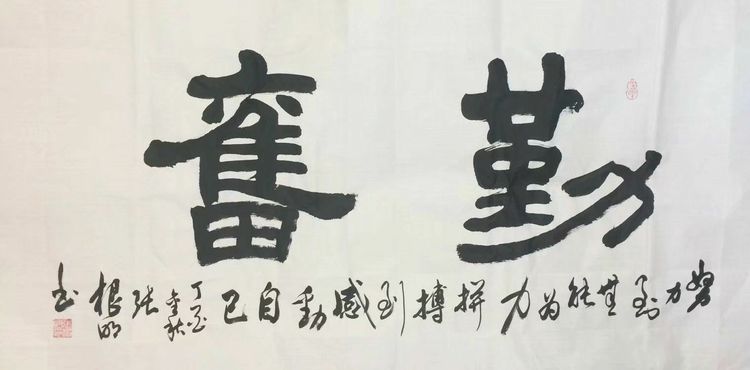 勤奮
努力到無能為力拼搏到感動自己
丁酉金秋
张根明书